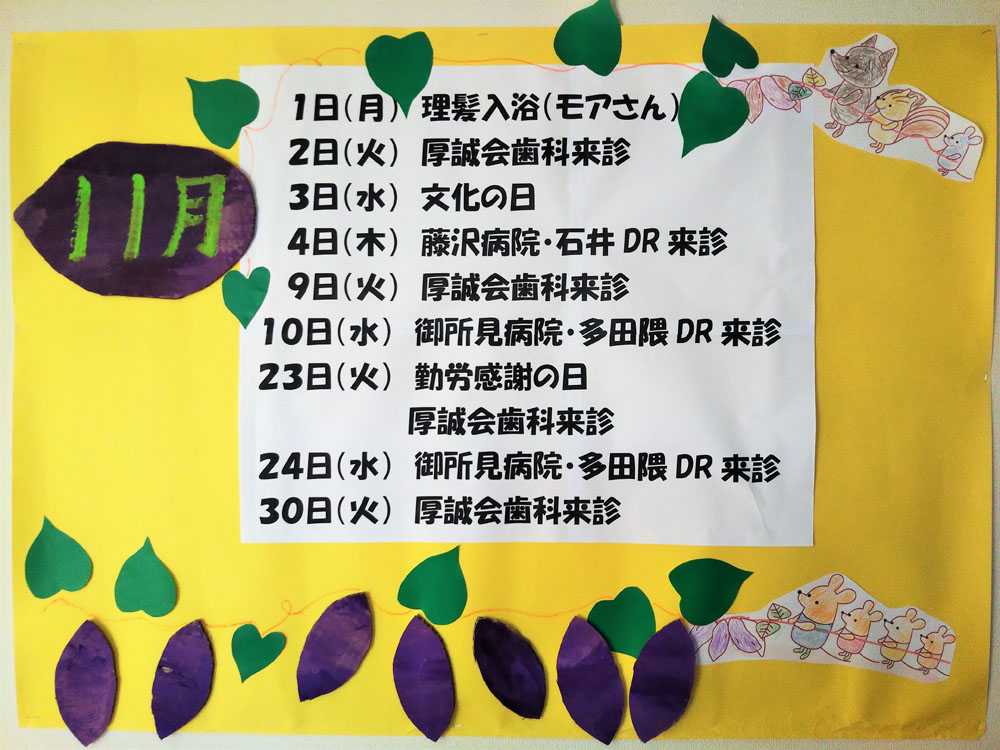 11月
1日(月) 理髪入浴(モアさん)
2日(火) 厚誠会歯科来診
3日(水) 文化の日
4日(木) 藤沢病院・石井DR来診
9日(火) 厚誠会歯科来診
10日(水) 御所見病院・多田隈DR来診
23日(火) 勤労感謝の日
厚誠会歯科来診
24日(水) 御所見病院・多田隈DR来診
30日(火) 厚誠会歯科来診